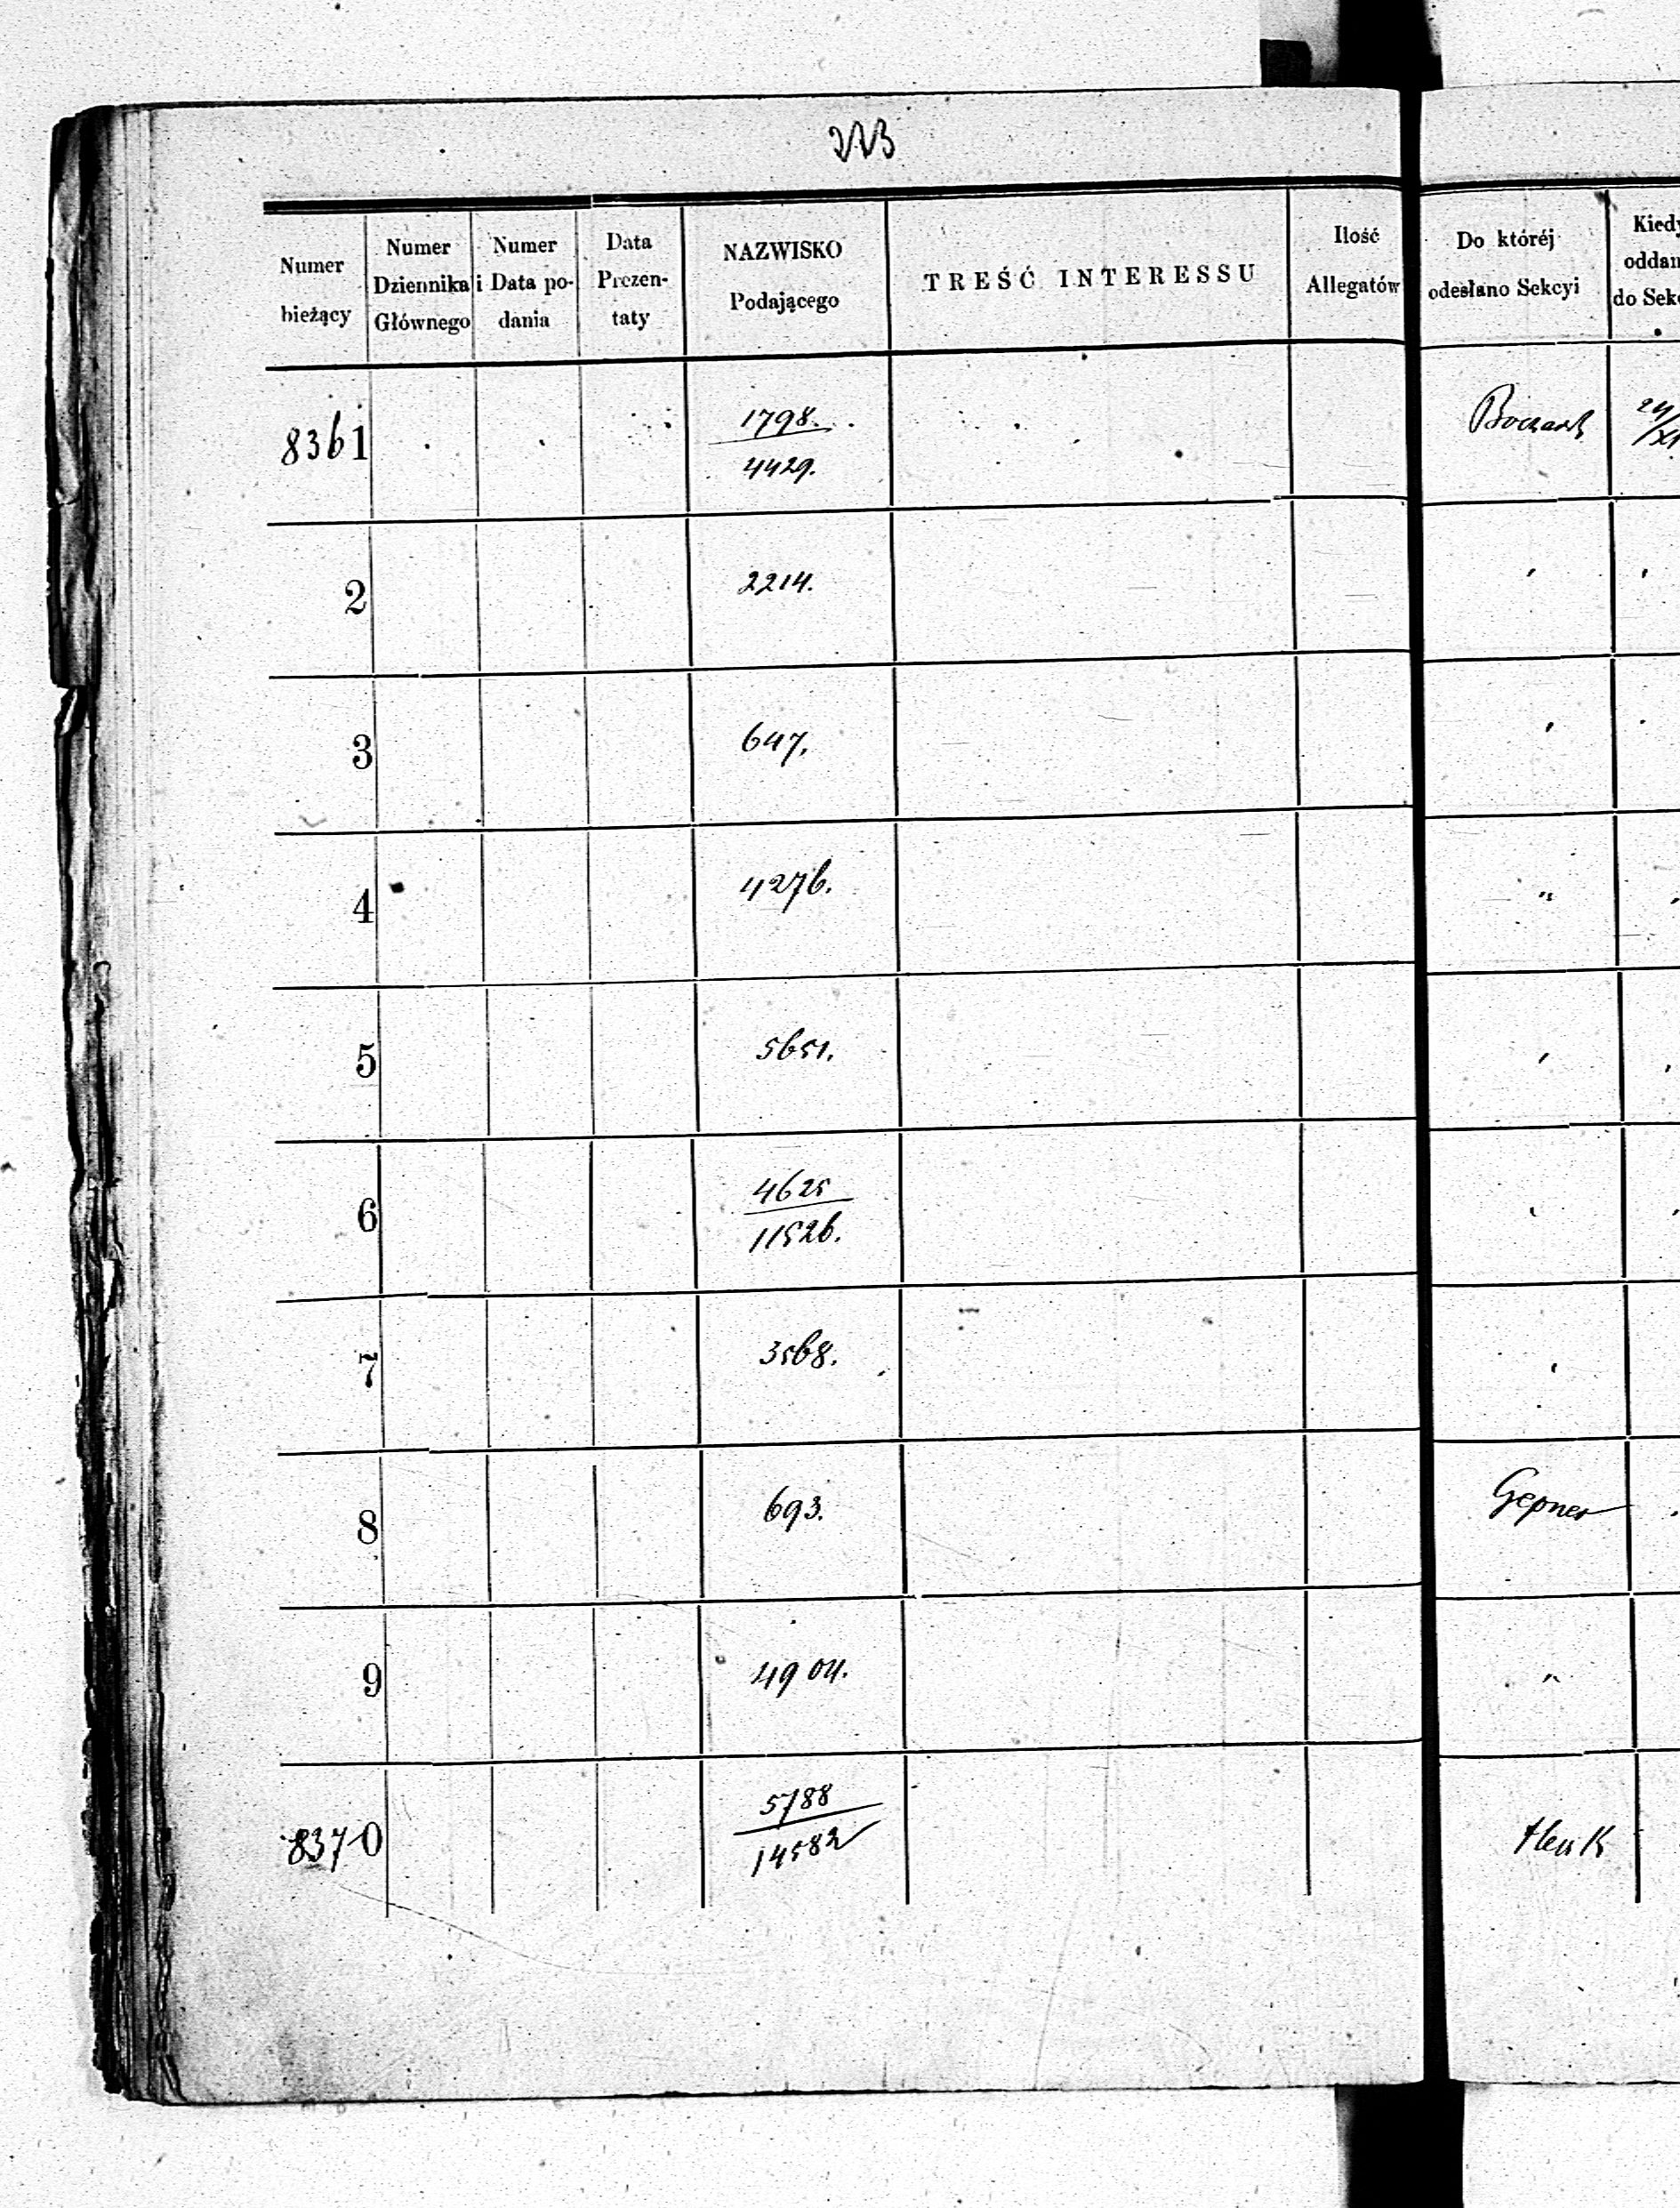 223
Numer bieżący
Numer Dziennika Głównego
Numer i Data podania
Data Prezentaty
NAZWISKO Podającego
TREŚĆ INTERESSU
Ilość Allegatów
Do któréj odesłano Sekcyi
8361 1798. 24
4429.
2 2214. "
3 647. "
4 4276. "
5 5651. "
6 4625 "
11526.
7 3568. "
8 693. Gepner
9 4904. "
8370 5788
14582